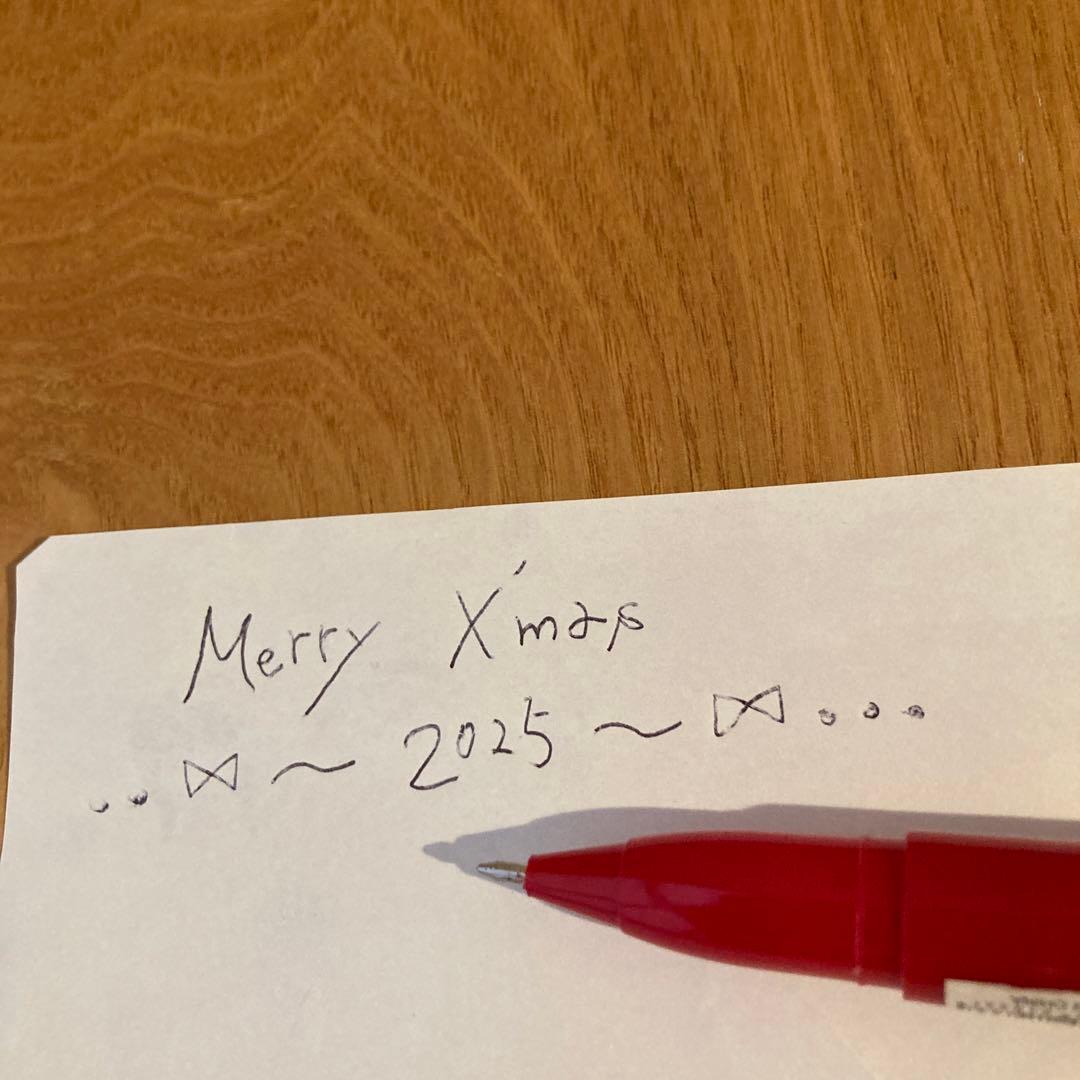 Merry X'mas
..⋈～2025～⋈...